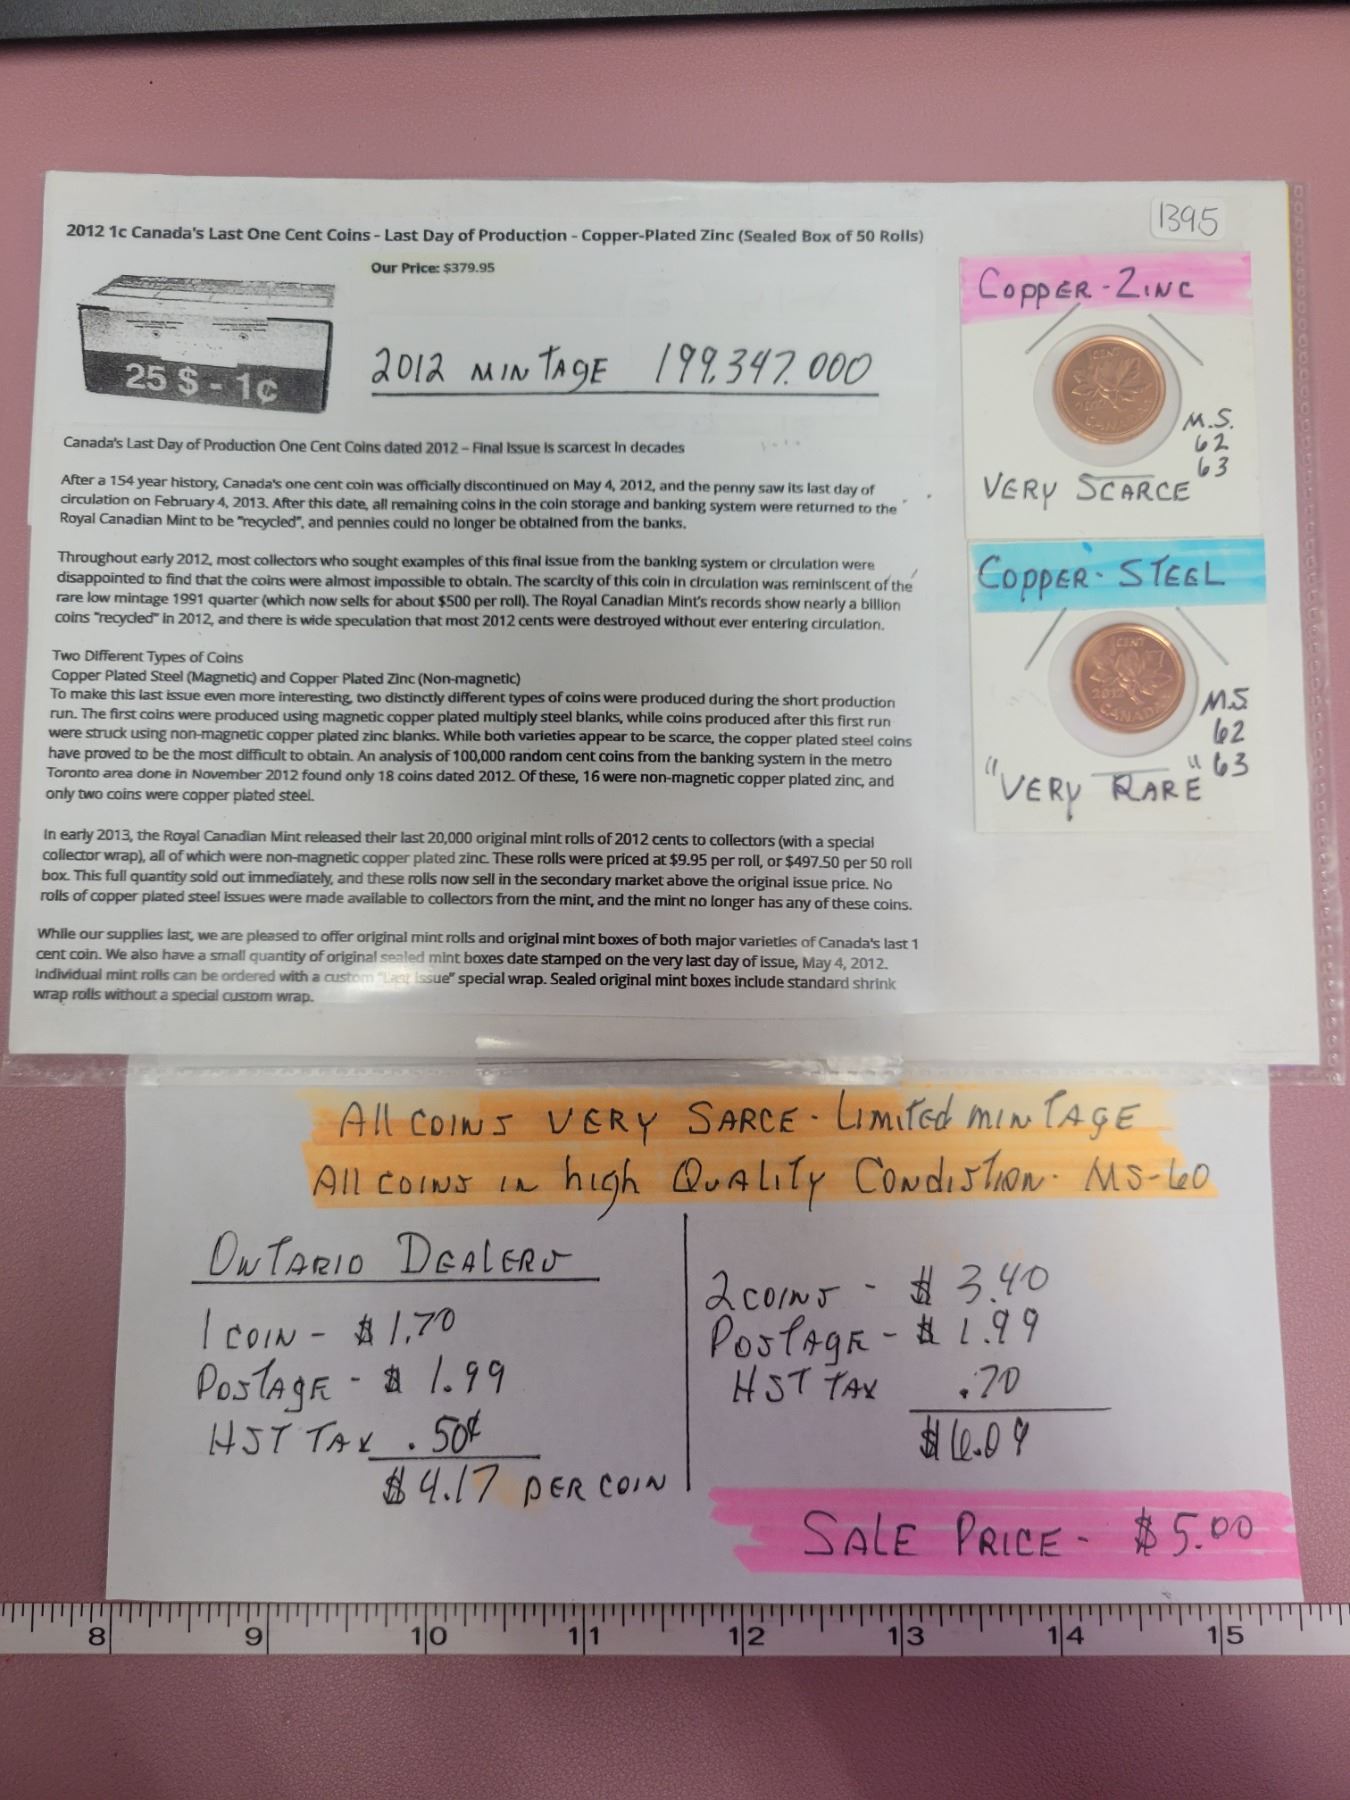 1395
2012 1c Canada's Last One Cent Coins - Last Day of Production - Copper-Plated Zinc (Sealed Box of 50 Rolls)
Our Price: $379.95
25 $ - 1¢
2012 MINTAGE 199,347.000
Canada's Last Day of Production One Cent Coins dated 2012 – Final Issue is scarcest in decades
After a 154 year history, Canada's one cent coin was officially discontinued on May 4, 2012, and the penny saw its last day of
circulation on February 4, 2013. After this date, all remaining coins in the coin storage and banking system were returned to the
Royal Canadian Mint to be "recycled", and pennies could no longer be obtained from the banks.
Throughout early 2012, most collectors who sought examples of this final issue from the banking system or circulation were
disappointed to find that the coins were almost impossible to obtain. The scarcity of this coin in circulation was reminiscent of the
rare low mintage 1991 quarter (which now sells for about $500 per roll). The Royal Canadian Mint's records show nearly a billion
coins "recycled" in 2012, and there is wide speculation that most 2012 cents were destroyed without ever entering circulation.
Two Different Types of Coins
Copper Plated Steel (Magnetic) and Copper Plated Zinc (Non-magnetic)
To make this last issue even more interesting, two distinctly different types of coins were produced during the short production
run. The first coins were produced using magnetic copper plated multiply steel blanks, while coins produced after this first run
were struck using non-magnetic copper plated zinc blanks. While both varieties appear to be scarce, the copper plated steel coins
have proved to be the most difficult to obtain. An analysis of 100,000 random cent coins from the banking system in the metro
Toronto area done in November 2012 found only 18 coins dated 2012. Of these, 16 were non-magnetic copper plated zinc, and
only two coins were copper plated steel.
In early 2013, the Royal Canadian Mint released their last 20,000 original mint rolls of 2012 cents to collectors (with a special
collector wrap), all of which were non-magnetic copper plated zinc. These rolls were priced at $9.95 per roll, or $497.50 per 50 roll
box. This full quantity sold out immediately, and these rolls now sell in the secondary market above the original issue price. No
rolls of copper plated steel issues were made available to collectors from the mint, and the mint no longer has any of these coins.
While our supplies last, we are pleased to offer original mint rolls and original mint boxes of both major varieties of Canada's last 1
cent coin. We also have a small quantity of original sealed mint boxes date stamped on the very last day of issue, May 4, 2012.
Individual mint rolls can be ordered with a custom "Last Issue" special wrap. Sealed original mint boxes include standard shrink
wrap rolls without a special custom wrap.
COPPER - ZINC
1 CENT
2012
CANADA
M.S.
62
63
VERY SCARCE
COPPER - STEEL
1 CENT
2012
CANADA
M.S
62
63
"VERY RARE"
All COINS VERY SARCE - LIMITED MINTAGE
All COINS IN high QUALITY CONDISTION - MS-60
ONTARIO DEALERS
1 COIN - $ 1.70
POSTAGE - $ 1.99
HST TAX .50¢
$4.17 PER COIN
2 COINS - $ 3.40
POSTAGE - $ 1.99
HST TAX .70
$6.09
SALE PRICE - $5.00
8 9 10 11 12 13 14 15